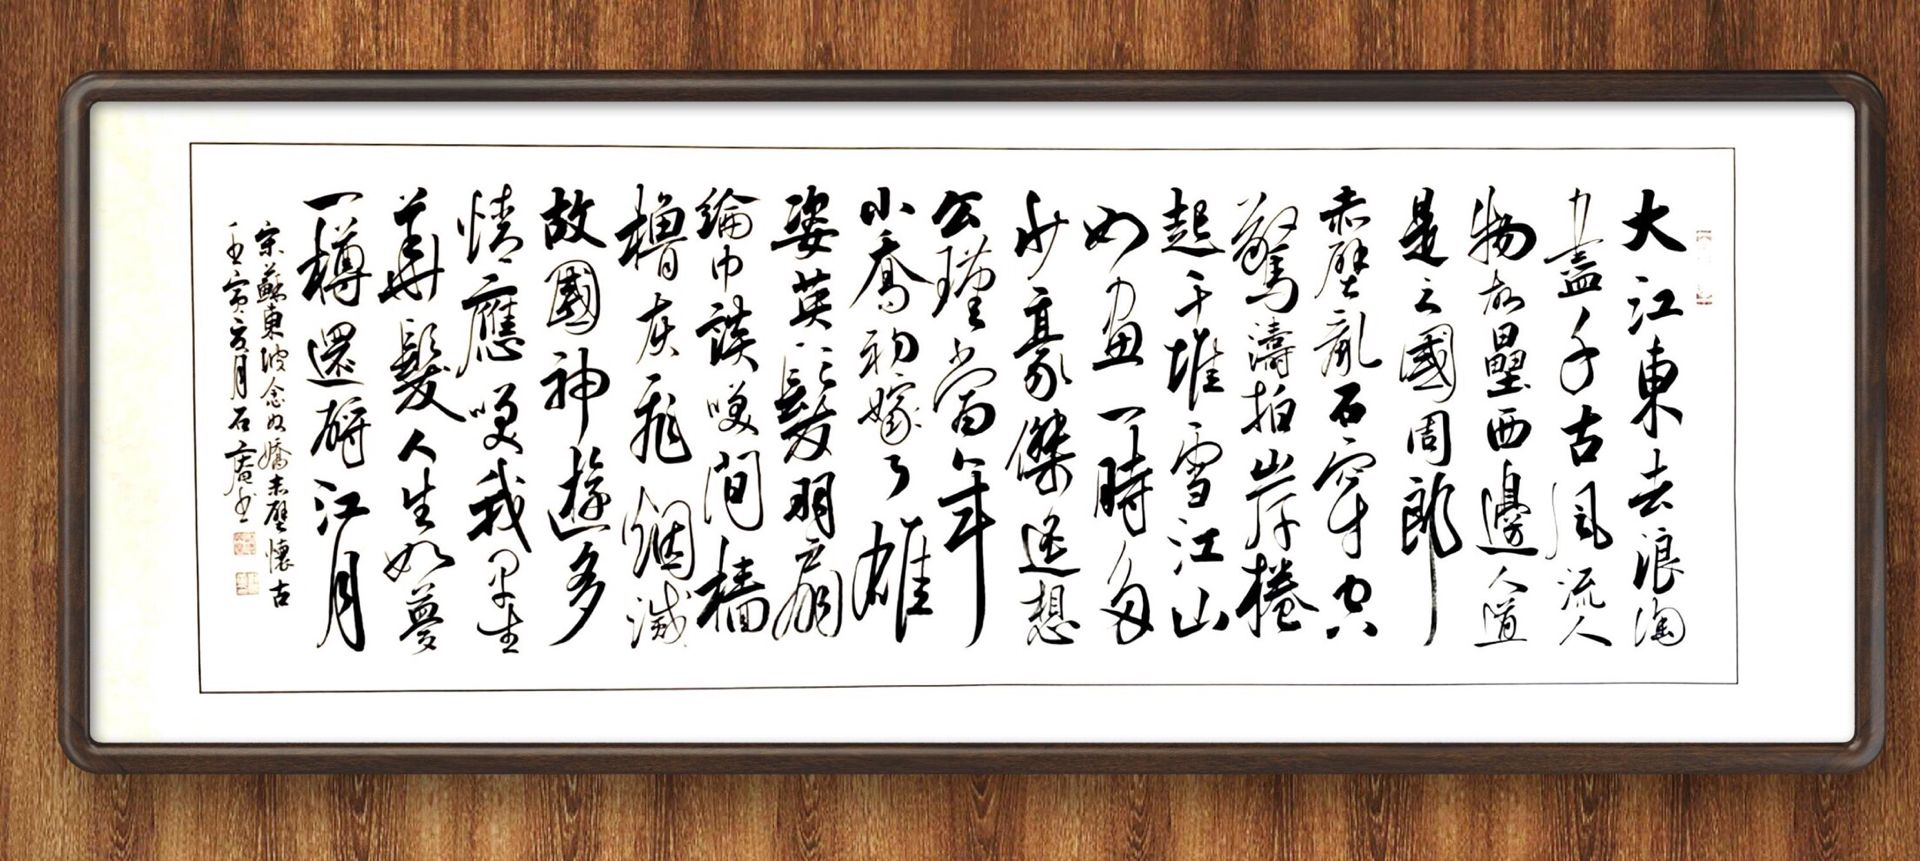 大江東去浪淘
盡千古風流人
物故壘西邊人道
是三國周郎
赤壁亂石穿空
驚濤拍岸捲
起千堆雪江山
如畫一時多
少豪傑遙想
公瑾當年
小喬初嫁了雄
姿英髮羽扇
綸巾談笑間檣
櫓灰飛烟滅
故國神遊多
情應笑我早生
華髮人生如夢
一樽還酹江月
宋蘇東坡念奴嬌赤壁懷古
壬寅月石書